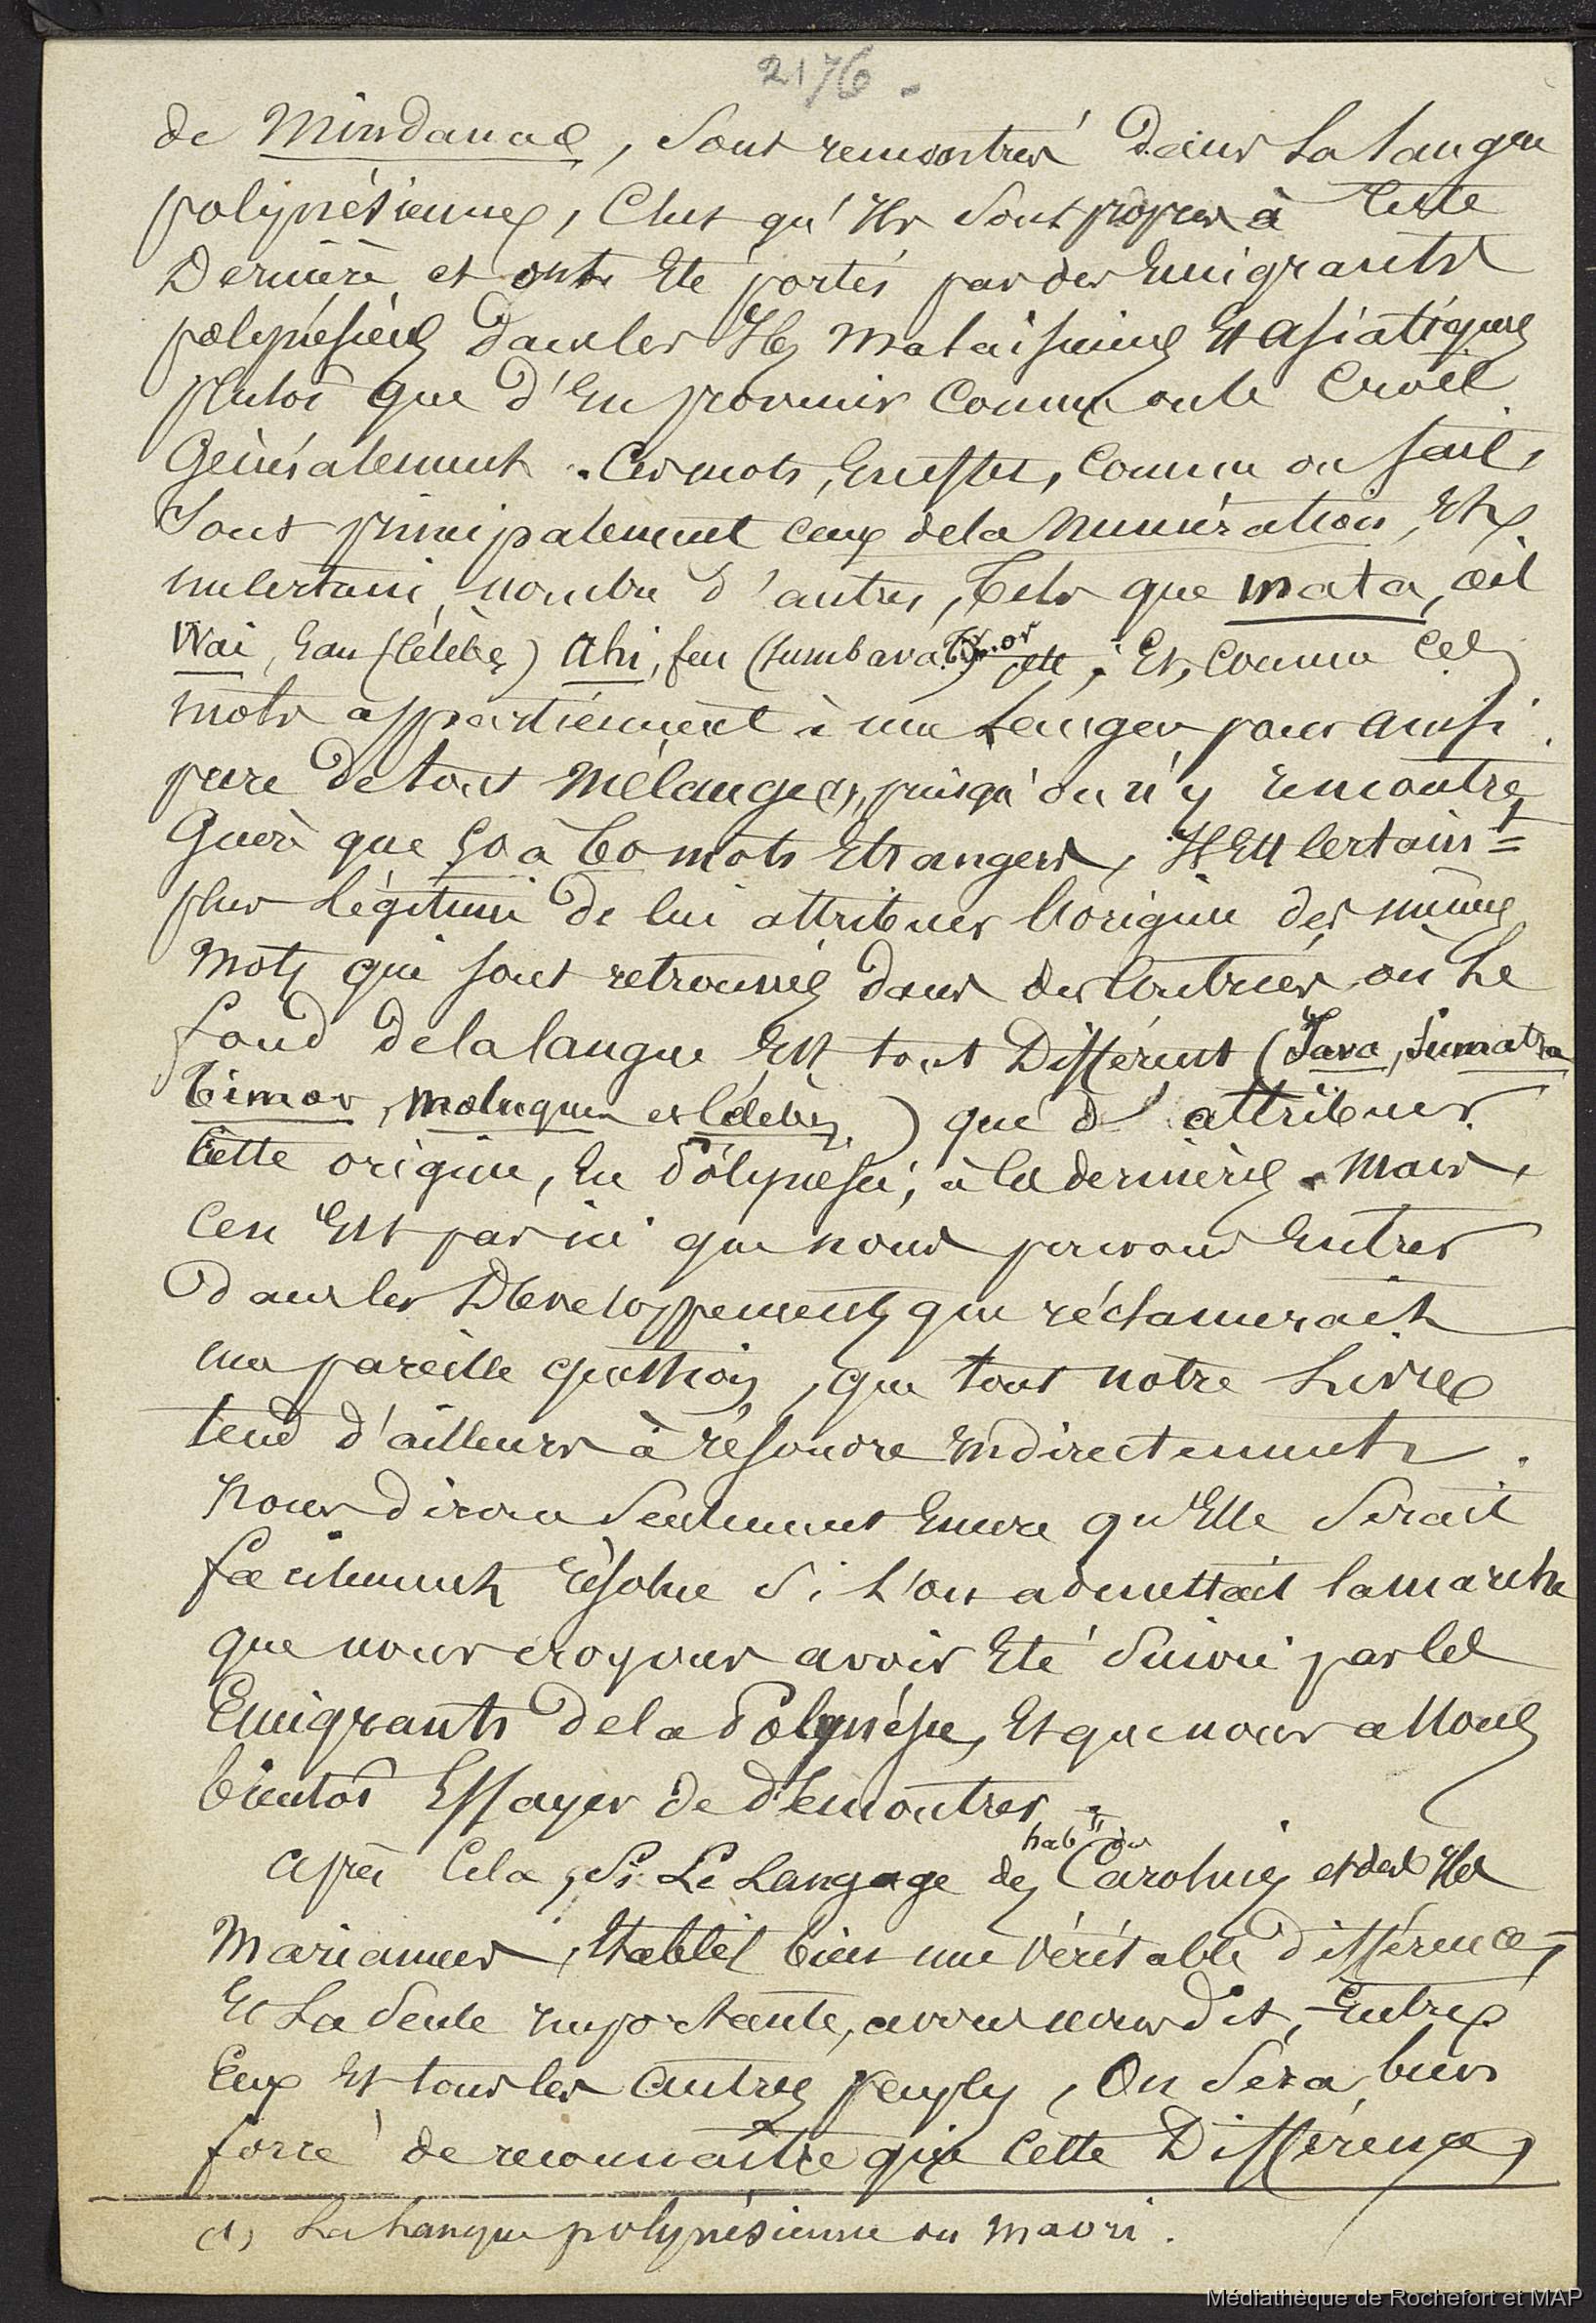 2176.
de Mindanao, sont rencontrés dans la langue
polynésienne, c'est qu'ils sont propres à cette
dernière et ont été portés par des émigrants
polynésiens dans les îles malaisiennes et asiatiques
plutôt que d'en provenir comme on le croit
généralement. Ces mots, en effet, comme on sait,
sont principalement ceux de la numération, et
un certain nombre d'autres, tels que mata, œil
Wai, eau (Célèbes) Ahi, feu (Sumbava) Timor ; Et, comme ces
mots appartiennent à une langue pour ainsi
pure de tout mélange (1), puisqu'on n'y rencontre
guère que 50 à 60 mots étrangers, il est certaint
plus légitime de lui attribuer l'origine des mêmes
mots qui sont retrouvés dans des contrées où le
fond de la langue est tout différent (Java, Sumatra
Timor, moluques et Célèbes) que d'attribuer
cette origine, en Polynésie, à la dernière. Mais,
ce n'est pas ici que nous pouvons entrer
dans les développements que réclamerait
une pareille question, que tout notre livre
tend d'ailleurs à résoudre indirectement.
Nous dirons seulement encore qu'elle serait
facilement résolue si l'on admettait la marche
que nous croyons avoir été suivie par les
Emigrants de la Polynésie, et que nous allons
bientôt essayer de démontrer.
Après cela, si le langage des habts des Carolines et des îles
Mariannes, établit bien une véritable différence,
et la seule importante, avons nous dit, entre
eux et tous les autres peuples, on sera bien
forcé de reconnaître que cette différence,
(1) La langue polynésienne ou maori.
Médiathèque de Rochefort et MAP